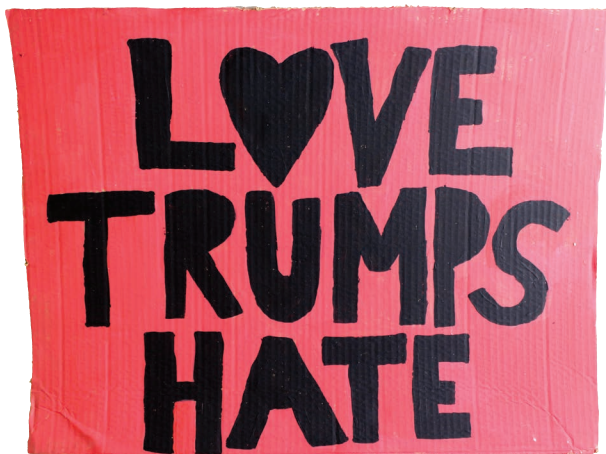 L♥VE
TRUMPS
HATE